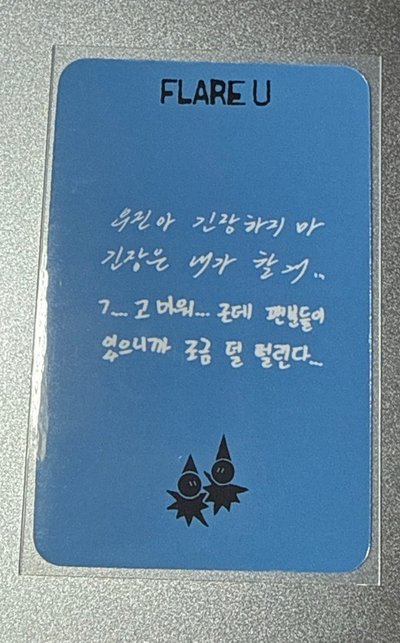 FLARE U
우진아 긴장하지 마
긴장은 내가 할 거..
ㄱ... 고마워... 근데 팬분들이
있으니까 조금 덜 떨린다...